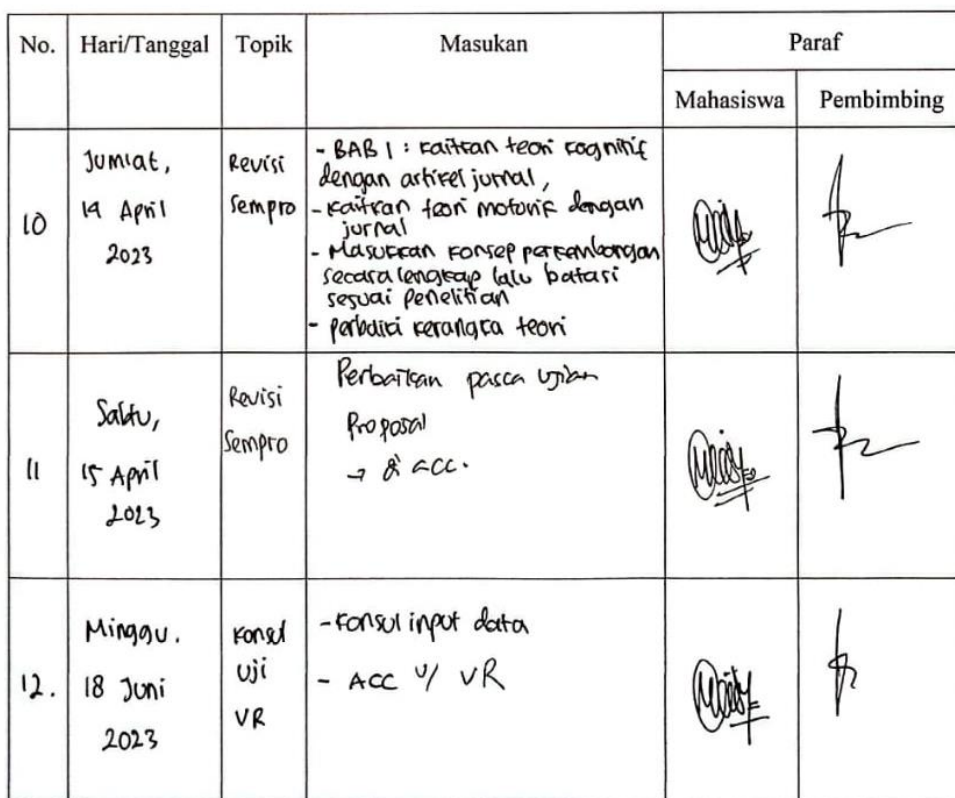 No. Hari/Tanggal Topik Masukan Paraf
Mahasiswa Pembimbing
10
Jumat,
14 April
2023
Revisi
Sempro
- BAB 1 : Kaitkan teori kognitif
dengan artikel jurnal,
- Kaitkan teori motorik dengan
jurnal
- Masukkan konsep perkembangan
secara lengkap lalu batasi
sesuai penelitian
- perbaiki kerangka teori
11
Sabtu,
15 April
2023
Revisi
Sempro
Perbaikan pasca ujian
Proposal
→ di acc.
12.
Minggu.
18 Juni
2023
Konsul
Uji
VR
- Konsul input data
- ACC U/ VR